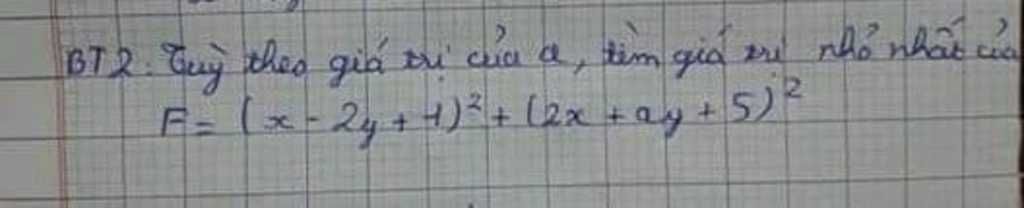 BT2: Tuỳ theo giá trị của a, tìm giá trị nhỏ nhất của
F = (x - 2y + 1)² + (2x + ay + 5)²